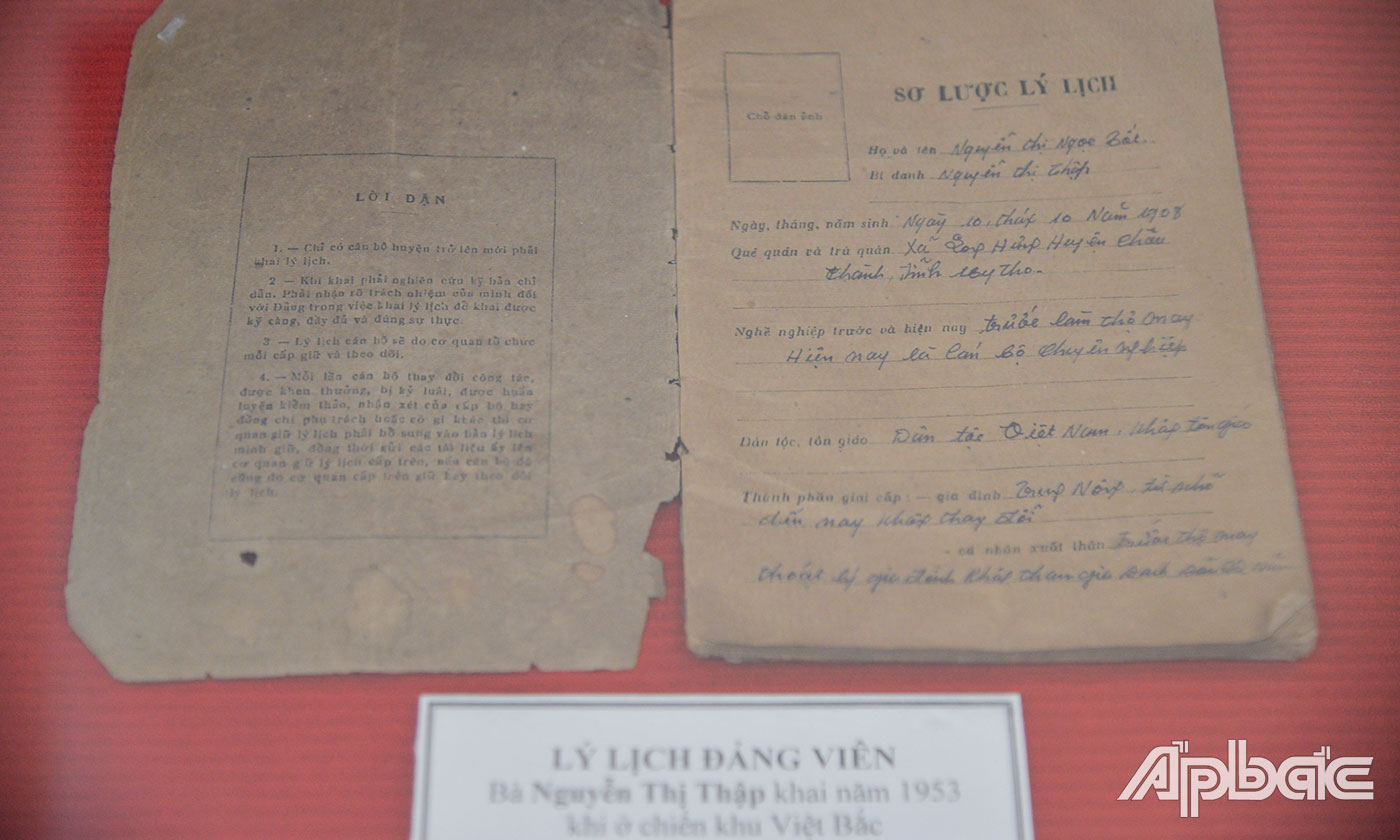 LỜI DẶN
1. — Chỉ có cán bộ huyện trở lên mới phải
khai lý lịch.
2 — Khi khai phải nghiên cứu kỹ bản chỉ
dẫn. Phải nhận rõ trách nhiệm của mình đối
với Đảng trong việc khai lý lịch để khai được
kỹ càng, đầy đủ và đúng sự thực.
3 — Lý lịch cán bộ sẽ do cơ quan tổ chức
mỗi cấp giữ và theo dõi.
4. — Mỗi lần cán bộ thay đổi công tác,
được khen thưởng, bị kỷ luật, được huấn
luyện kiểm thảo, nhận xét của cấp bộ hay
đồng chí phụ trách hoặc có gì khác thì cơ
quan giữ lý lịch phải bổ sung vào bản lý lịch
mình giữ, đồng thời gửi các tài liệu ấy lên
cơ quan giữ lý lịch cấp trên, nếu cán bộ đó
cũng do cơ quan cấp trên giữ hay theo dõi
lý lịch.
Chỗ dán ảnh
SƠ LƯỢC LÝ LỊCH
Họ và tên Nguyễn thị Ngọc Tốt
Bí danh Nguyễn thị thập
Ngày, tháng, năm sinh Ngày 10, tháng 10 Năm 1908
Quê quán và trú quán Xã Long Hưng Huyện Châu
thành, tỉnh Mỹ tho.
Nghề nghiệp trước và hiện nay trước làm thợ may
Hiện nay là cán bộ chuyên nghiệp
Dân tộc, tôn giáo Dân tộc Việt Nam, không tôn giáo
Thành phần giai cấp : — gia đình trung Nông, từ nhỏ
đến nay không thay đổi
- cá nhân xuất thân trước thợ may
thoát ly gia đình không tham gia
LÝ LỊCH ĐẢNG VIÊN
Bà Nguyễn Thị Thập khai năm 1953
khi ở chiến khu Việt Bắc
Apbắc